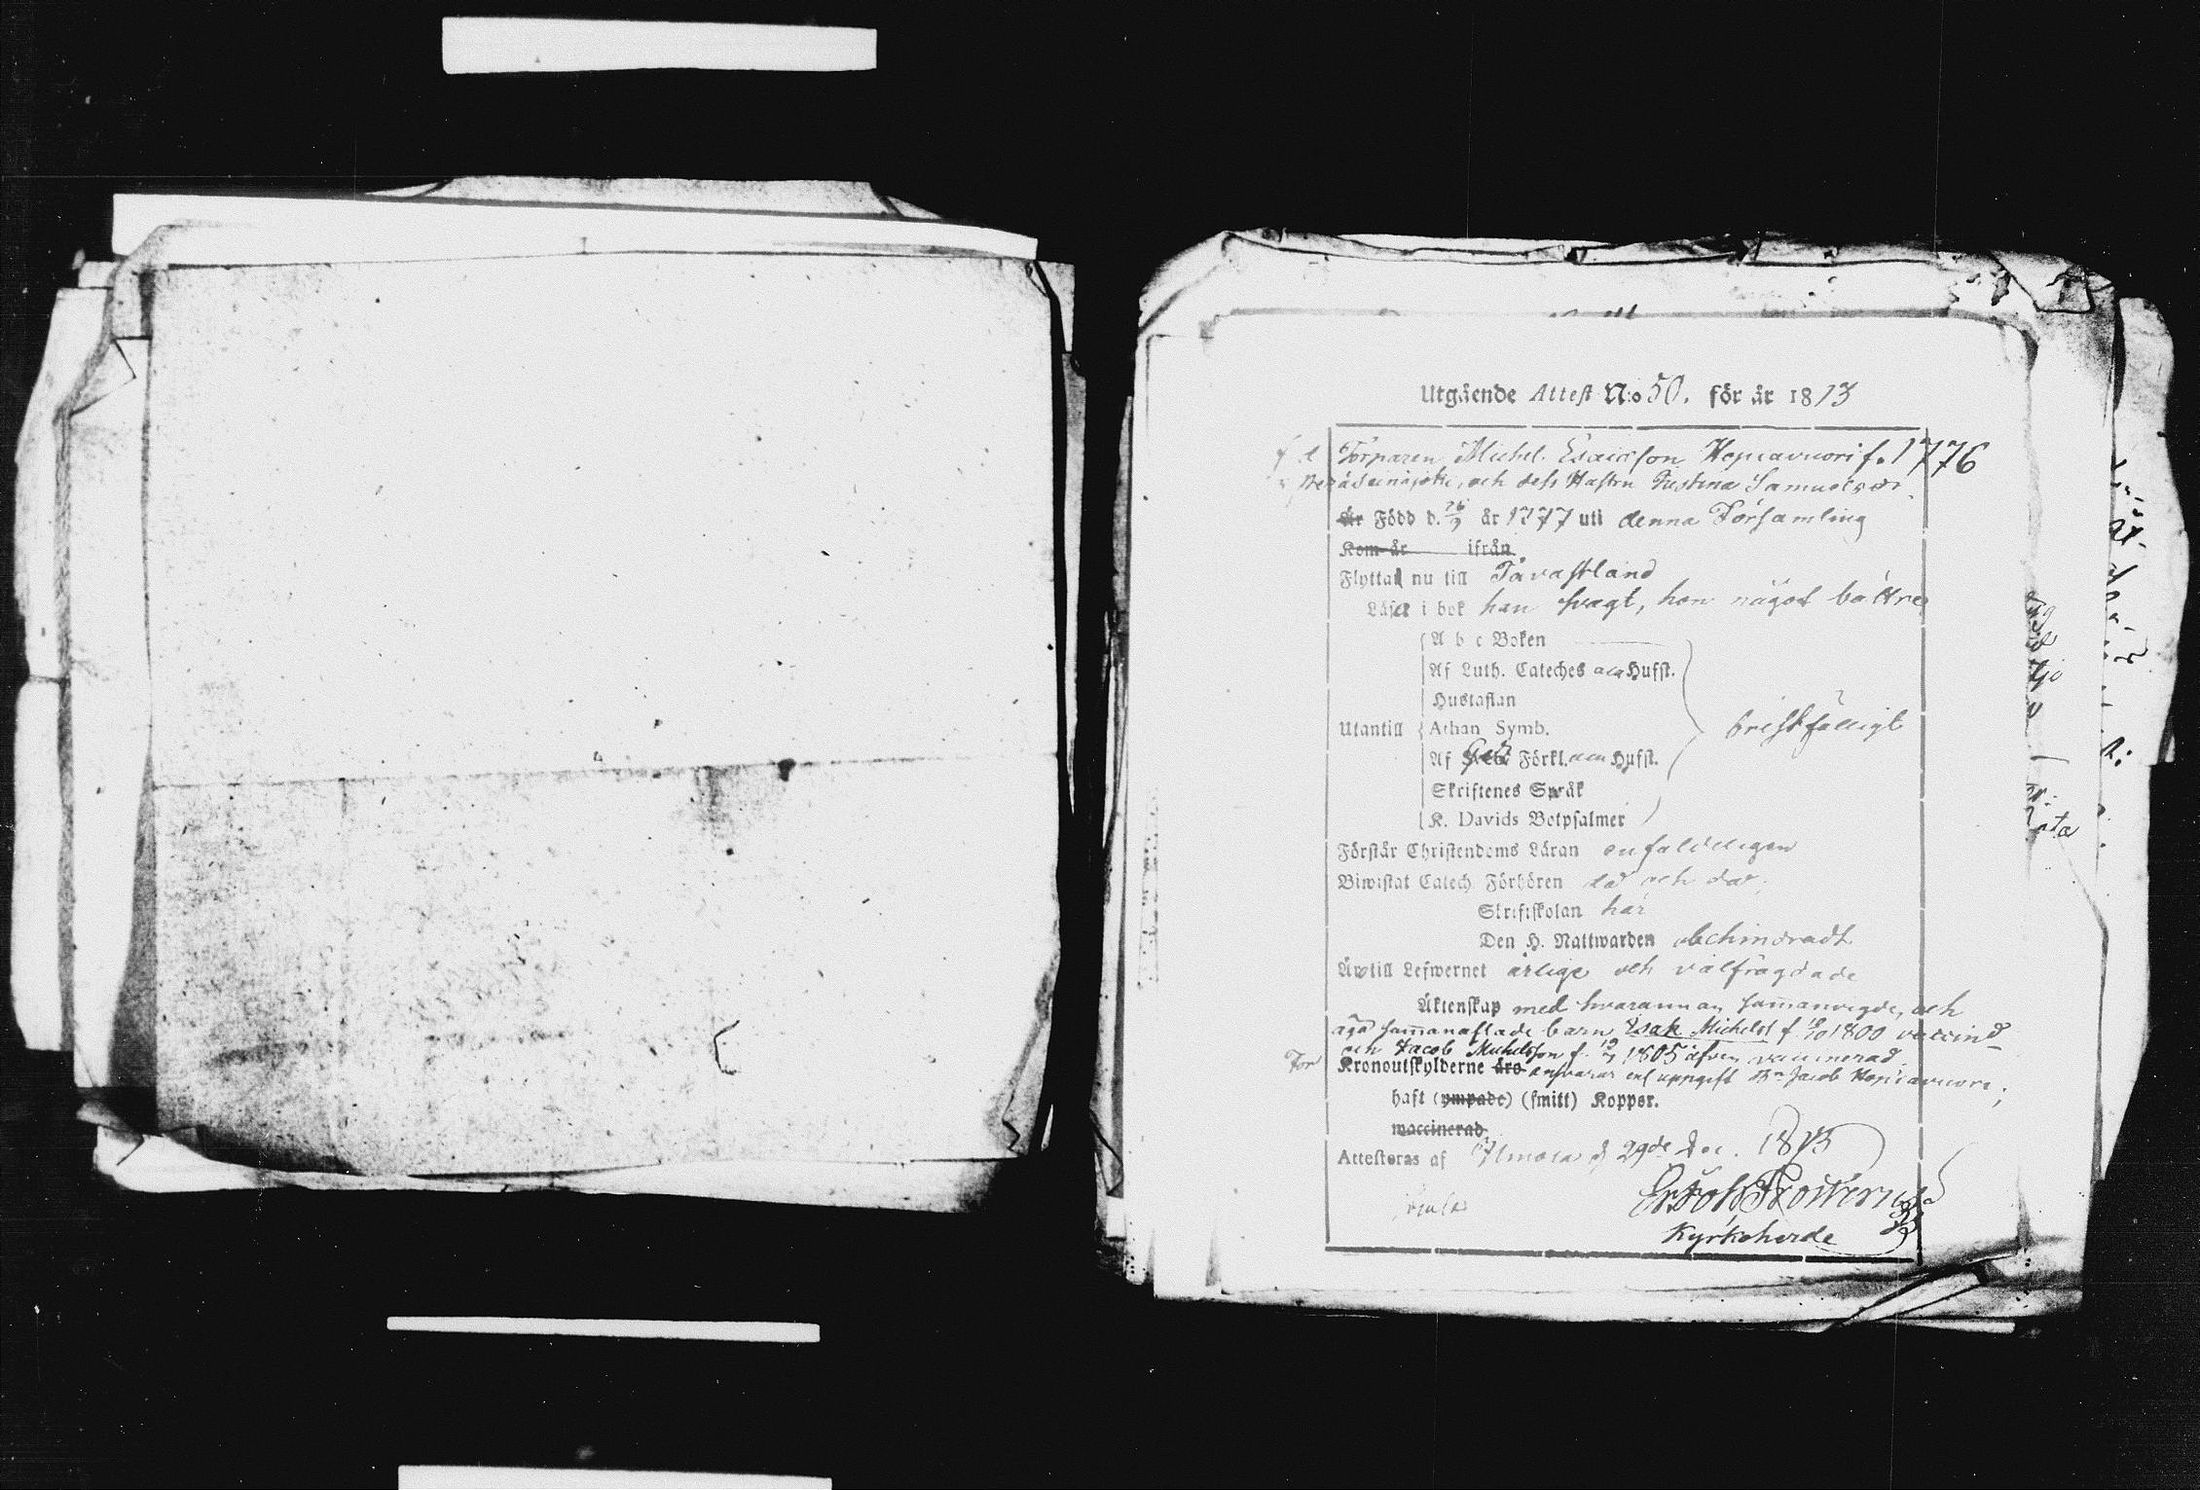 Utgående Attest N:o 50. för år 1813
f d Torparen Michel Esaiasson Hopiavuori f. 1776
Peräseinäjoki, och dess Hustru Justina Samuelsdr
Är Född d. 26/9 år 1777 uti denna Församling
Kom år ifrån
Flytta nu till Tavastland
Läsa i bok han svagt, hon något bättre
A b c Boken
Af Luth. Cateches alla Hufst.
Hustaflan
Utantill Athan Symb. bristfälligt
Af Förkl. alla Hufst.
Skriftenes Språk
K. Davids Botpsalmer
Förstår Christendoms Läran enfaldeligen
Biwistat Catech Förhören då och då;
Skriftskolan här
Den H. Nattwarden obehindradt
Äro till Lefwernet ärlige och välfrägdade
Äktenskap med hvarannan sammanvigde, och
äga sammanaflade barn Esak Michelss f 1800 vaccind
och Jacob Michelsson f. 1805 äfven vaccinerad
För Kronoutskylderne äro ansvarar enl uppgift Jacob Hopiavuori;
haft (ympade) (smitt) Koppor.
waccinerad
Attesteras af Ilmola d 29de Dec. 1813
Kyrkoherde